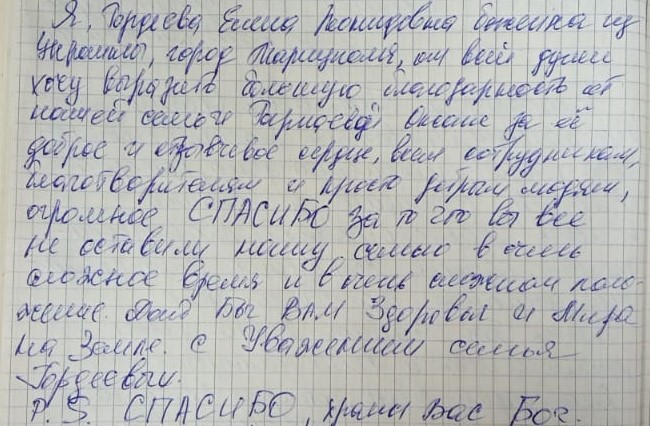 Я, Гордеева Елена Леонидовна беженка из
Украины, город Мариуполя, от всей души
хочу выразить большую благодарность от
нашей семьи Оксане за её
доброе и отзывчивое сердце, всем сотрудникам,
благотворителям и просто добрым людям,
огромное СПАСИБО за то что вы все
не оставили нашу семью в очень
сложное время и в очень сложном поло-
жение. Дай Бог Вам Здоровья и Мира
на Земле. с Уважением семья
Гордеевых.
P.S. СПАСИБО, храни Вас Бог.